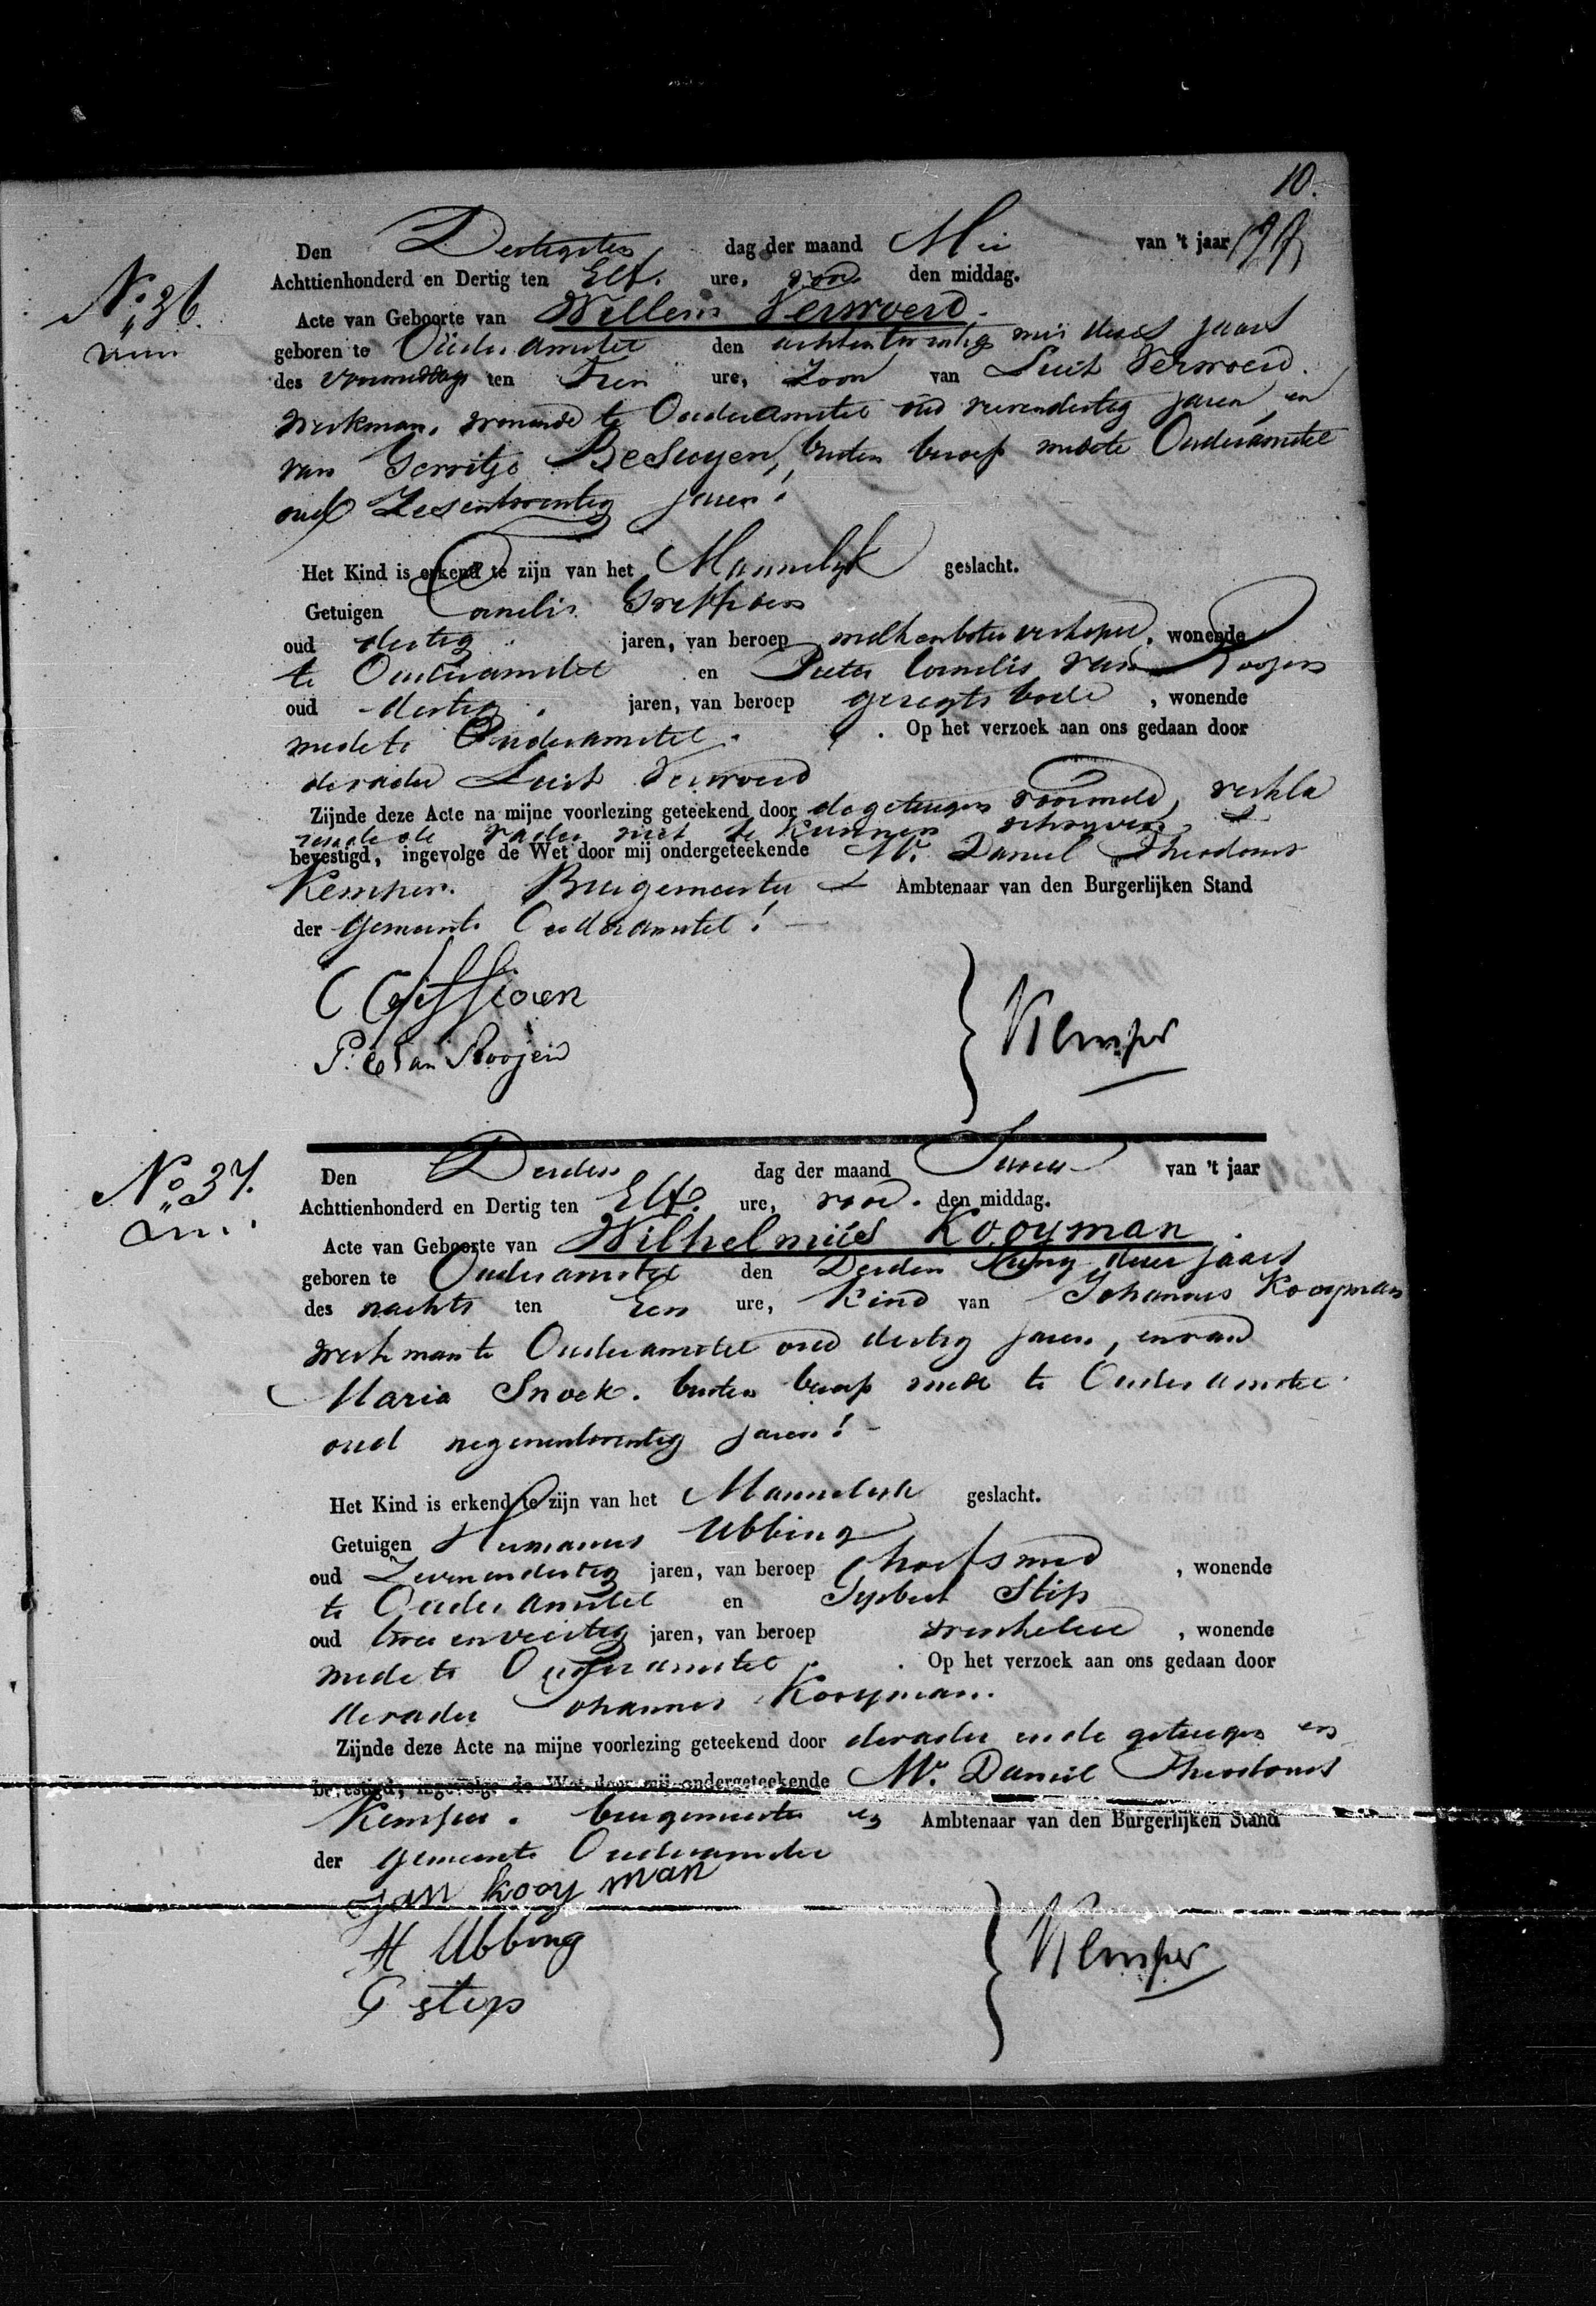 10.
Den Dertigsten dag der maand Mei van 't jaar
No. 36.
Achttienhonderd en Dertig ten Elf. ure, voor den middag.
Acte van Geboorte van Willem Verwoerd.
geboren te Ouderamstel den achtentwintig mei dezes jaars
des voormiddags ten Tien ure, Zoon van Luit Verwoerd.
werkman, wonende te Ouderamstel oud jaren en
van Gerritje Beseyen, buiten beroep mede te Ouderamstel
oud Zesentwintig jaren!
Het Kind is erkend te zijn van het Mannelyk geslacht.
Getuigen Cornelis Griffioen
oud dertig jaren, van beroep melk en boter verkoper, wonende
te Ouderamstel en Pieter Cornelis van Roojen
oud dertig. jaren, van beroep geregts bode, wonende
mede te Ouderamstel. . Op het verzoek aan ons gedaan door
de vader Luit Verwoerd
Zijnde deze Acte na mijne voorlezing geteekend door de getuigen voormeld, verkla
rende de vader niet te kunnen schryven &
bevestigd, ingevolge de Wet door mij ondergeteekende Mr. Daniel Theodorus
Kemper. Burgemeester & Ambtenaar van den Burgerlijken Stand
der gemeente Ouderamstel!
C Griffioen
P: C van Roojen
Kemper
No. 37.
Den Derden dag der maand Juny van 't jaar
Achttienhonderd en Dertig ten Elf. ure, voor. den middag.
Acte van Geboorte van Wilhelmus Kooyman.
geboren te Ouderamstel den Derden Juny dezer jaars
des nachts ten Een ure, Kind van Johannes Kooyman
werkman te Ouderamstel oud dertig jaren, en van
Maria Snoek. buiten beroep mede te Ouderamstel
oud negenentwintig jaren!
Het Kind is erkend te zijn van het Mannelyk geslacht.
Getuigen Hermanus Ubbing
oud Zevenendertig jaren, van beroep hoefsmid, wonende
te Ouderamstel en Gysbert Stip
oud twee en veertig jaren, van beroep winkelier, wonende
mede te Ouderamstel. . Op het verzoek aan ons gedaan door
de vader Johannes Kooyman.
Zijnde deze Acte na mijne voorlezing geteekend door de vader en de getuigen en
bevestigd, ingevolge de Wet door mij ondergeteekende Mr. Daniel Theodorus
Kemper. burgemeester en Ambtenaar van den Burgerlijken Stand
der gemeente Ouderamstel
jan kooy man
H Ubbing
G stip
Kemper